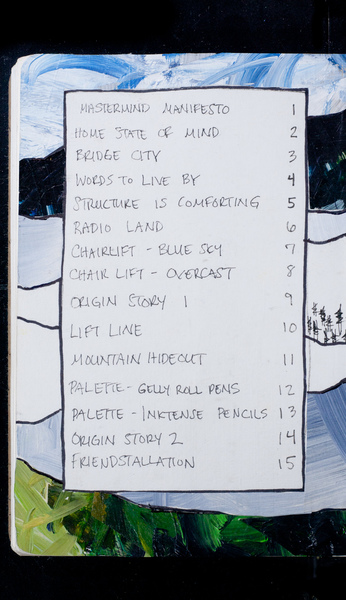 MASTERMIND MANIFESTO 1
HOME STATE OF MIND 2
BRIDGE CITY 3
WORDS TO LIVE BY 4
STRUCTURE IS COMFORTING 5
RADIO LAND 6
CHAIRLIFT - BLUE SKY 7
CHAIR LIFT - OVERCAST 8
ORIGIN STORY 1 9
LIFT LINE 10
MOUNTAIN HIDEOUT 11
PALETTE - GELLY ROLL PENS 12
PALETTE - INKTENSE PENCILS 13
ORIGIN STORY 2 14
FRIENDSTALLATION 15